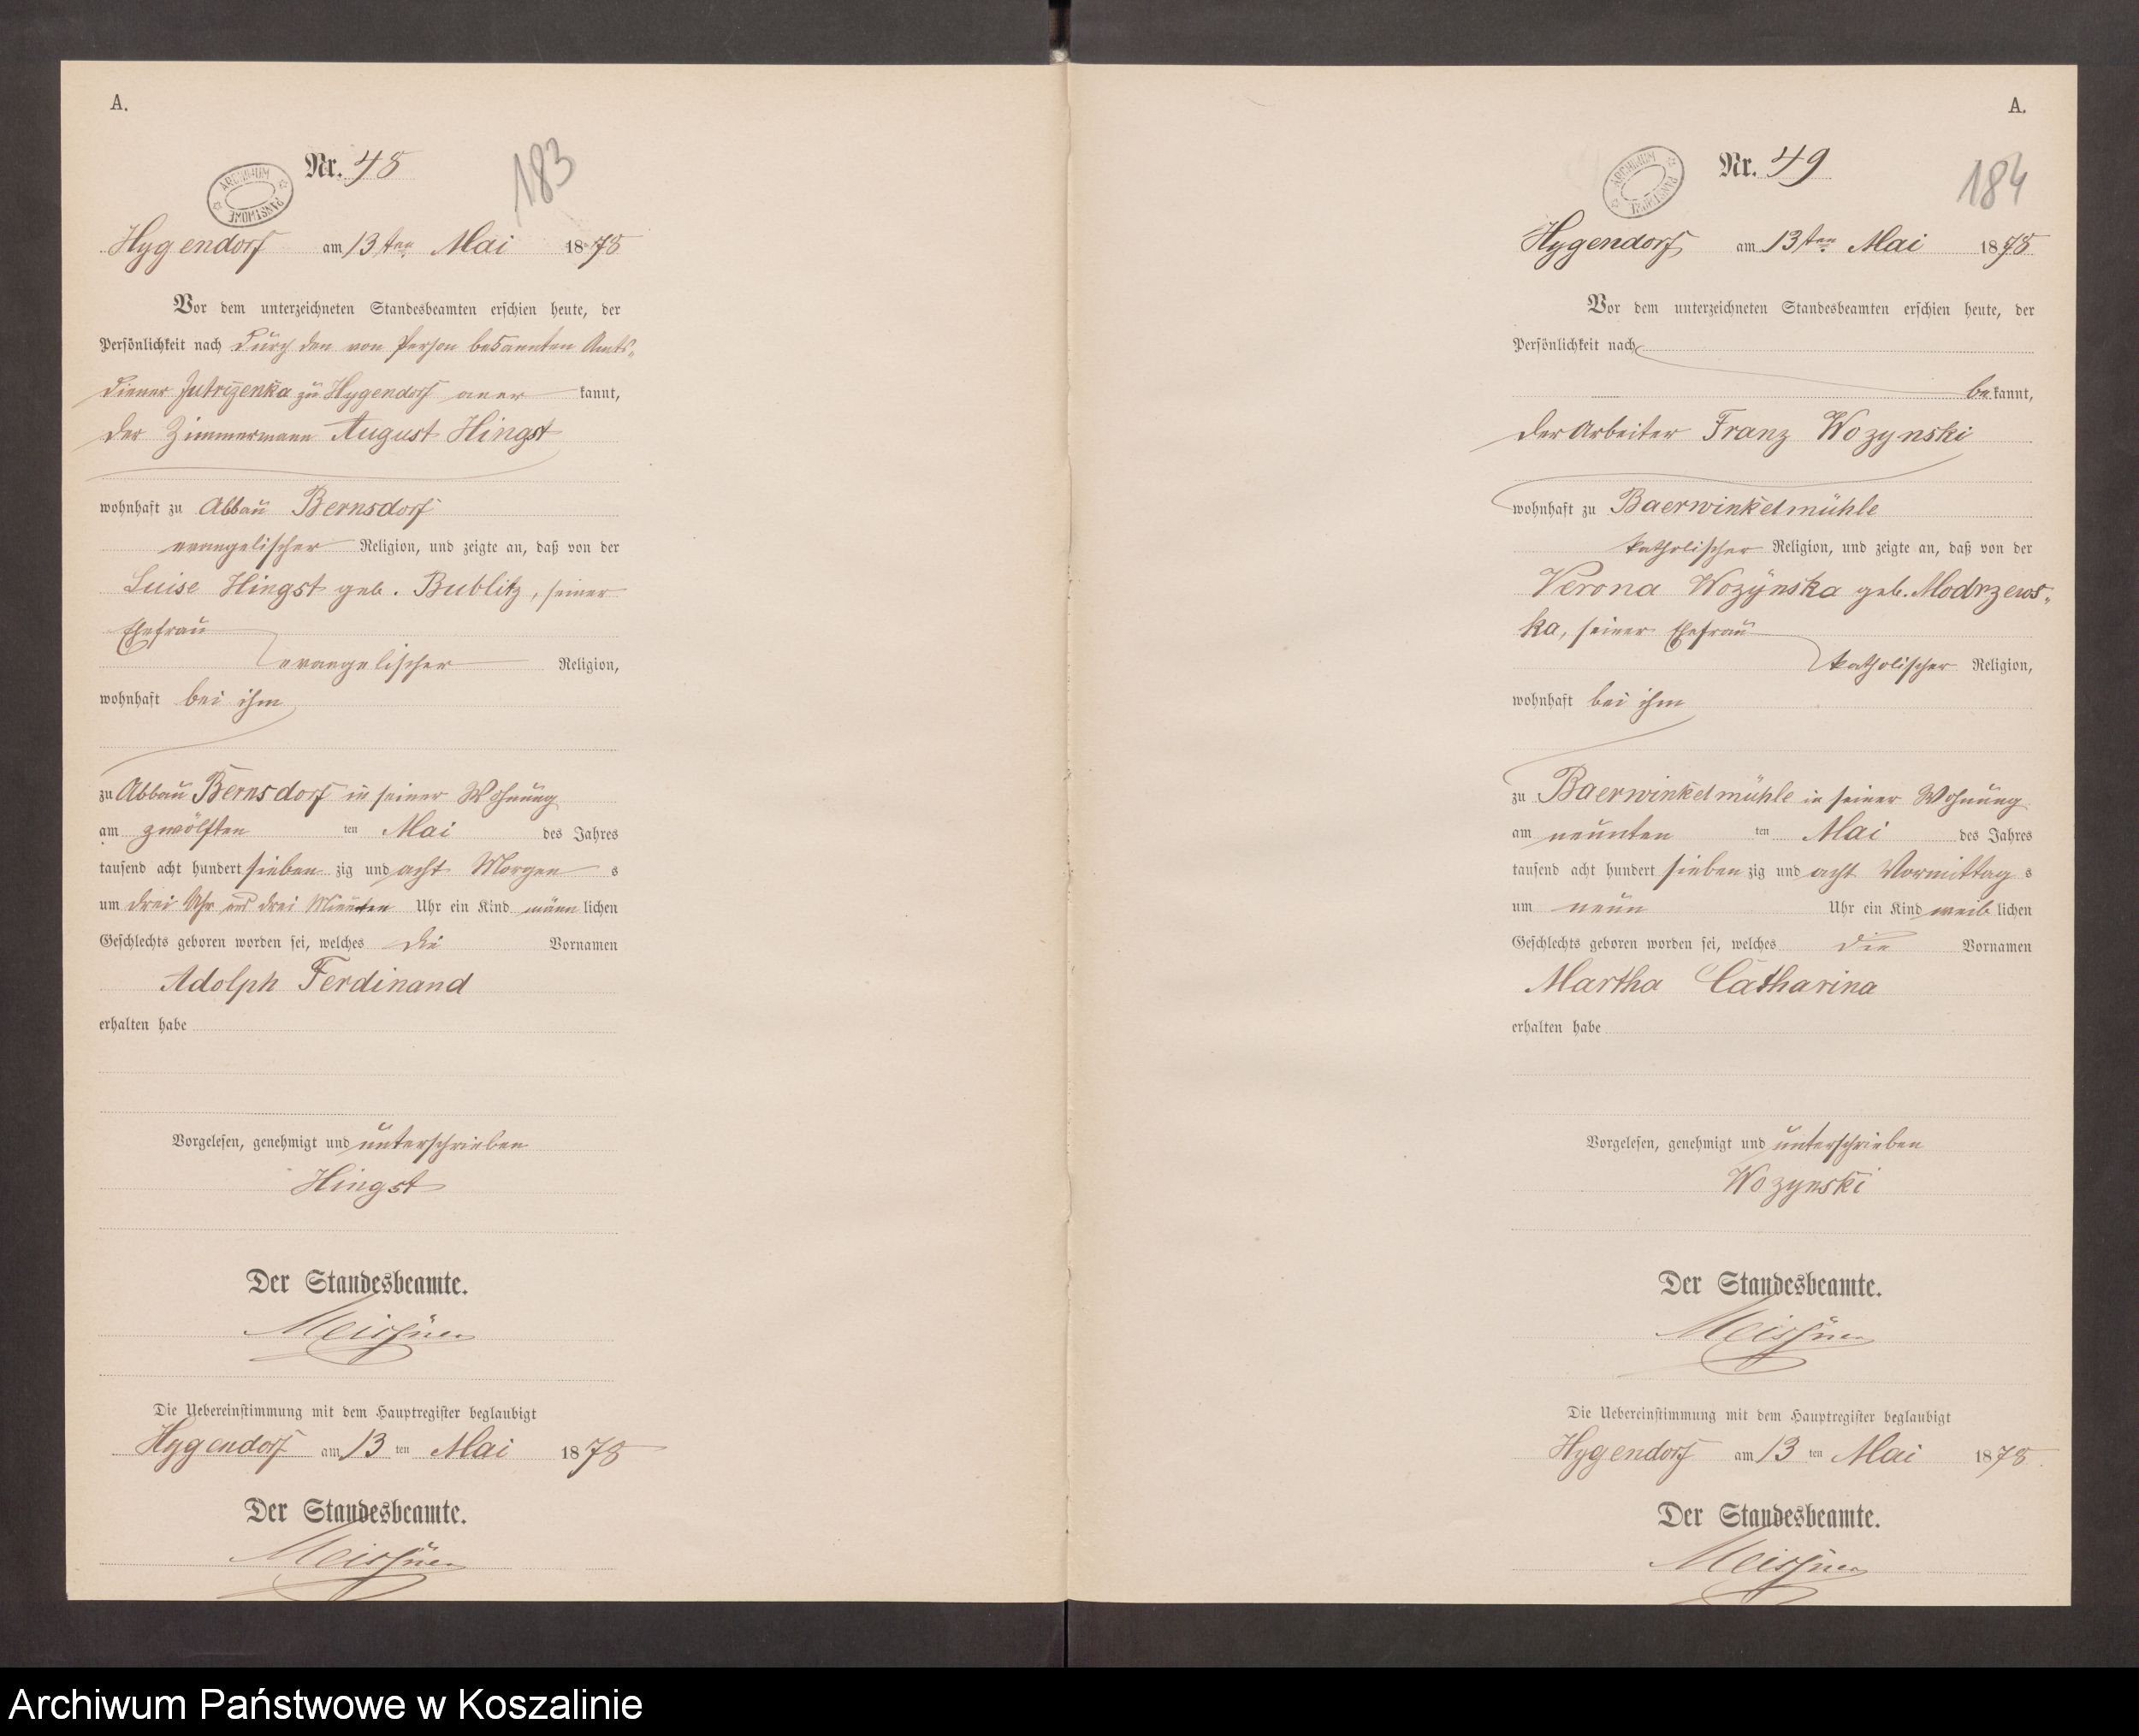 A.
Nr. 48
183
ARCHIWUM PAŃSTWOWE
Hygendorf am 13ten Mai 1878
Vor dem unterzeichneten Standesbeamten erschien heute, der
Persönlichkeit nach durch den von Person bekannten Amts-
diener Jutrzenka zu Hygendorf aner kannt,
der Zimmermann August Hingst
wohnhaft zu Abbau Bernsdorf
evangelischer Religion, und zeigte an, daß von der
Luise Hingst geb. Bublitz, seiner
Ehefrau
evangelischer Religion,
wohnhaft bei ihm
zu Abbau Bernsdorf in seiner Wohnung
am zwölften ten Mai des Jahres
tausend acht hundert sieben zig und acht Morgen s
um drei Uhr und drei Minuten Uhr ein Kind männ lichen
Geschlechts geboren worden sei, welches die Vornamen
Adolph Ferdinand
erhalten habe
Vorgelesen, genehmigt und unterschrieben
Hingst
Der Standesbeamte.
Meissner
Die Uebereinstimmung mit dem Hauptregister beglaubigt
Hygendorf am 13 ten Mai 1878
Der Standesbeamte.
Meissner
A.
Nr. 49
184
ARCHIWUM PAŃSTWOWE
Hygendorf am 13ten Mai 1878
Vor dem unterzeichneten Standesbeamten erschien heute, der
Persönlichkeit nach
be kannt,
der Arbeiter Franz Wozynski
wohnhaft zu Baerwinkelmühle
katholischer Religion, und zeigte an, daß von der
Verona Wozynska geb. Modrzews-
ka, seiner Ehefrau
katholischer Religion,
wohnhaft bei ihm
zu Baerwinkelmühle in seiner Wohnung
am neunten ten Mai des Jahres
tausend acht hundert sieben zig und acht Vormittag s
um neun Uhr ein Kind weib lichen
Geschlechts geboren worden sei, welches die Vornamen
Martha Catharina
erhalten habe
Vorgelesen, genehmigt und unterschrieben
Wozynski
Der Standesbeamte.
Meissner
Die Uebereinstimmung mit dem Hauptregister beglaubigt
Hygendorf am 13 ten Mai 1878
Der Standesbeamte.
Meissner
Archiwum Państwowe w Koszalinie